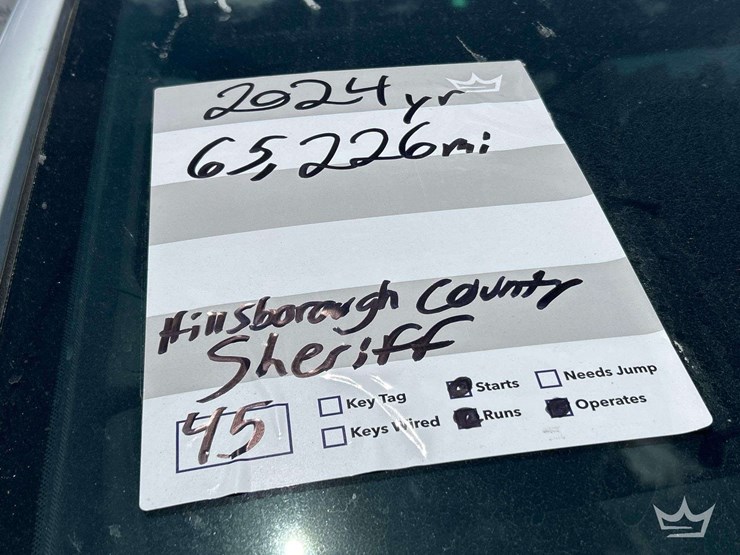 2024 yr
65,226 mi
Hillsborough County
Sheriff
45
Key Tag
Starts
Needs Jump
Keys Wired
Runs
Operates